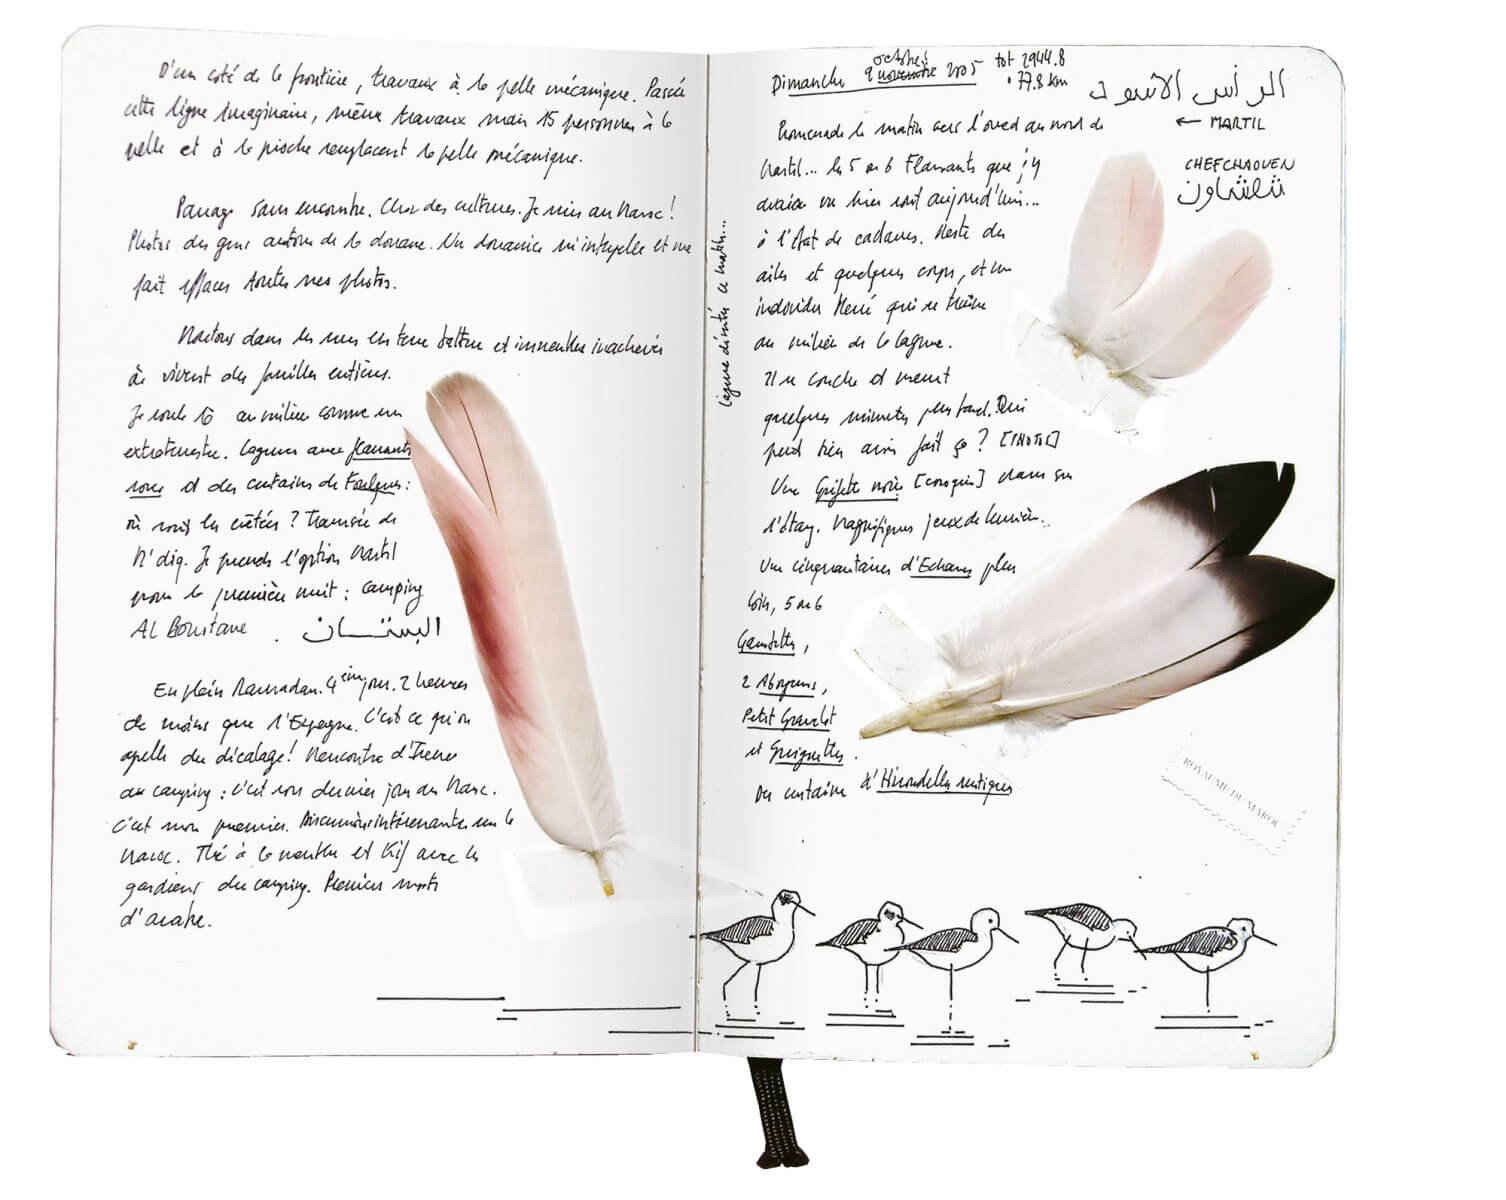 D'un coté de la frontière, travaux à la pelle mécanique. Passée
cette ligne imaginaire, même travaux mais 15 personnes à la
pelle et à la pioche remplacent la pelle mécanique.
Passage sans encombre. Choc des cultures. Je suis au Maroc!
Photos des gens autour de la douane. Un douanier m'interpelle et me
fait effacer toutes mes photos.
Martil dans les rues en terre battue et immeubles inachevés
où vivent des familles entières.
Je roule là au milieu comme un
extraterrestre. Lagunes avec flamants
roses et des centaines de Foulques:
où sont les crêtées? Traversée de
M'diq. Je prends l'option Martil
pour la première nuit: camping
AL Boustane . البستــان
En plein Ramadan. 4 ème jour. 2 heures
de moins que l'Espagne. C'est ce qu'on
appelle du décalage! Rencontre d'Irene
au camping: c'est son dernier jour au Maroc.
C'est mon premier. Discussions intéressantes sur le
Maroc. Thé à la menthe et Kif avec les
gardiens du camping. Premiers mots
d'arabe.
octobre
Dimanche 9 novembre 2005 tot 2944.8
• 77.8 km
الرأس الأسود
← MARTIL
CHEFCHAOUEN
شفشاون
Promenade le matin vers l'oued au nord de
Martil... les 5 ou 6 Flamants que j'y
avais vu hier sont aujourd'hui...
à l'état de cadavres. Reste des
ailes et quelques corps, et un
individu blessé qui se traîne
au milieu de la lagune.
Il se couche et meurt
quelques minutes plus tard. Qui
peut bien avoir fait ça? [PHOTOS]
Une Guifette noire [croquis] dans sur
l'étang. Magnifiques jeux de lumière..
Une cinquantaine d'Echasses plus
loin, 5 ou 6
Gambettes,
2 Aboyeurs,
Petit Gravelot
et Guignettes.
Des centaines d'Hirondelles rustiques
lagune désertée ce matin...
ROYAUME DU MAROC